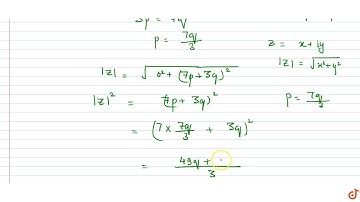 3p = 7q
p = 7q/3
z = x+iy
|z| = √(0² + (7p+3q)²)
|z| = √(x²+y²)
|z|² = (7p + 3q)²
p = 7q/3
= (7 × 7q/3 + 3q)²
= 49q + /3